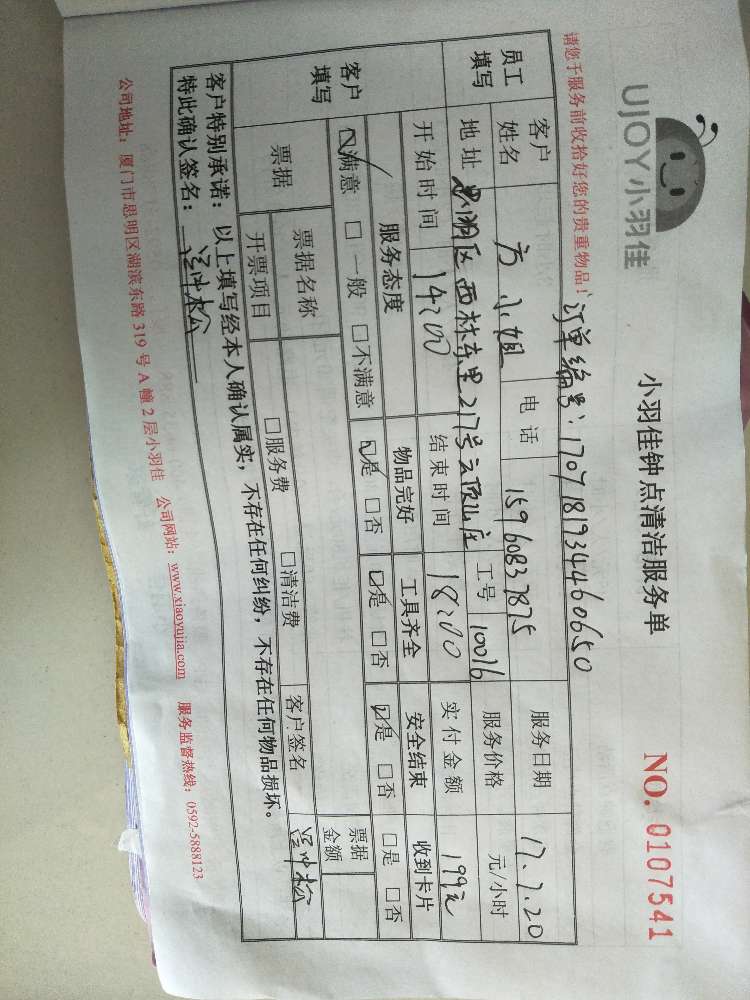 UJOY小羽佳
小羽佳钟点清洁服务单
NO. 0107541
请您于服务前收拾好您的贵重物品！
订单编号：170718193446065​0
员工填写
客户姓名 方小姐 电话 15960837875 服务日期 17.7.20
地址 思明区西林东里217号云顶山庄 工号 10016 服务价格 元/小时
开始时间 14:00 结束时间 18:00 实付金额 199元
客户填写
服务态度 物品完好 工具齐全 安全结束 收到卡片
☑满意 □一般 □不满意 ☑是 □否 ☑是 □否 ☑是 □否 □是 □否
票据 票据名称 票据金额
开票项目 □服务费 □清洁费 客户签名
客户特别承诺：以上填写经本人确认属实，不存在任何纠纷，不存在任何物品损坏。
特此确认签名：
公司地址：厦门市思明区湖滨东路 319 号 A 幢 2 层小羽佳 公司网站：www.xiaoyujia.com 服务监督热线：0592-5888123